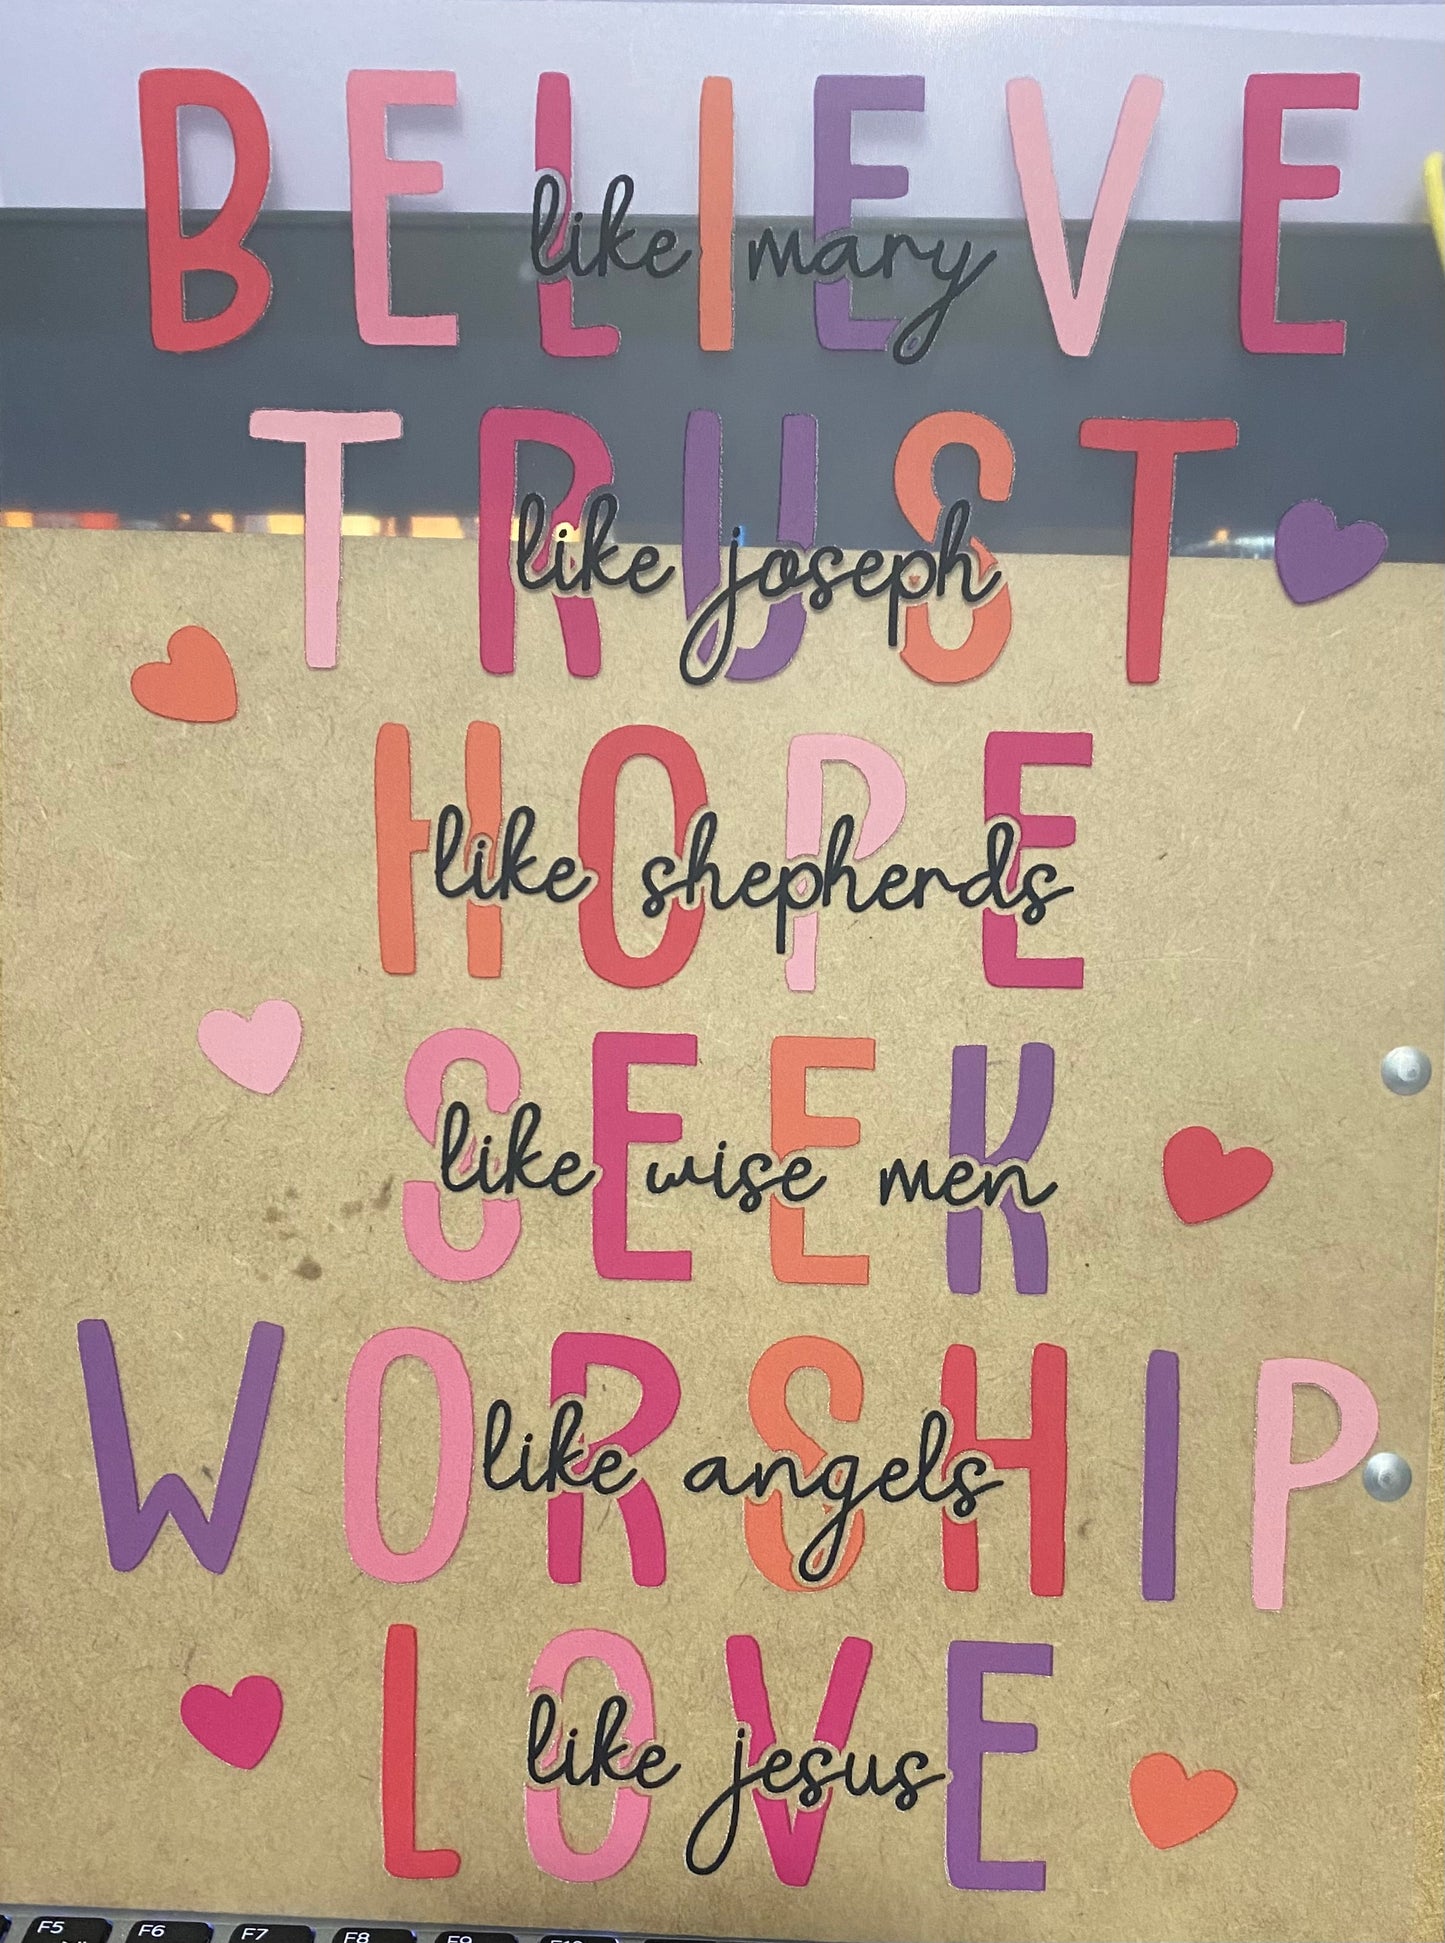 BELIEVE
like mary
TRUST
like joseph
HOPE
like shepherds
SEEK
like wise men
WORSHIP
like angels
LOVE
like jesus
F5 F6 F7 F8 F9 F10